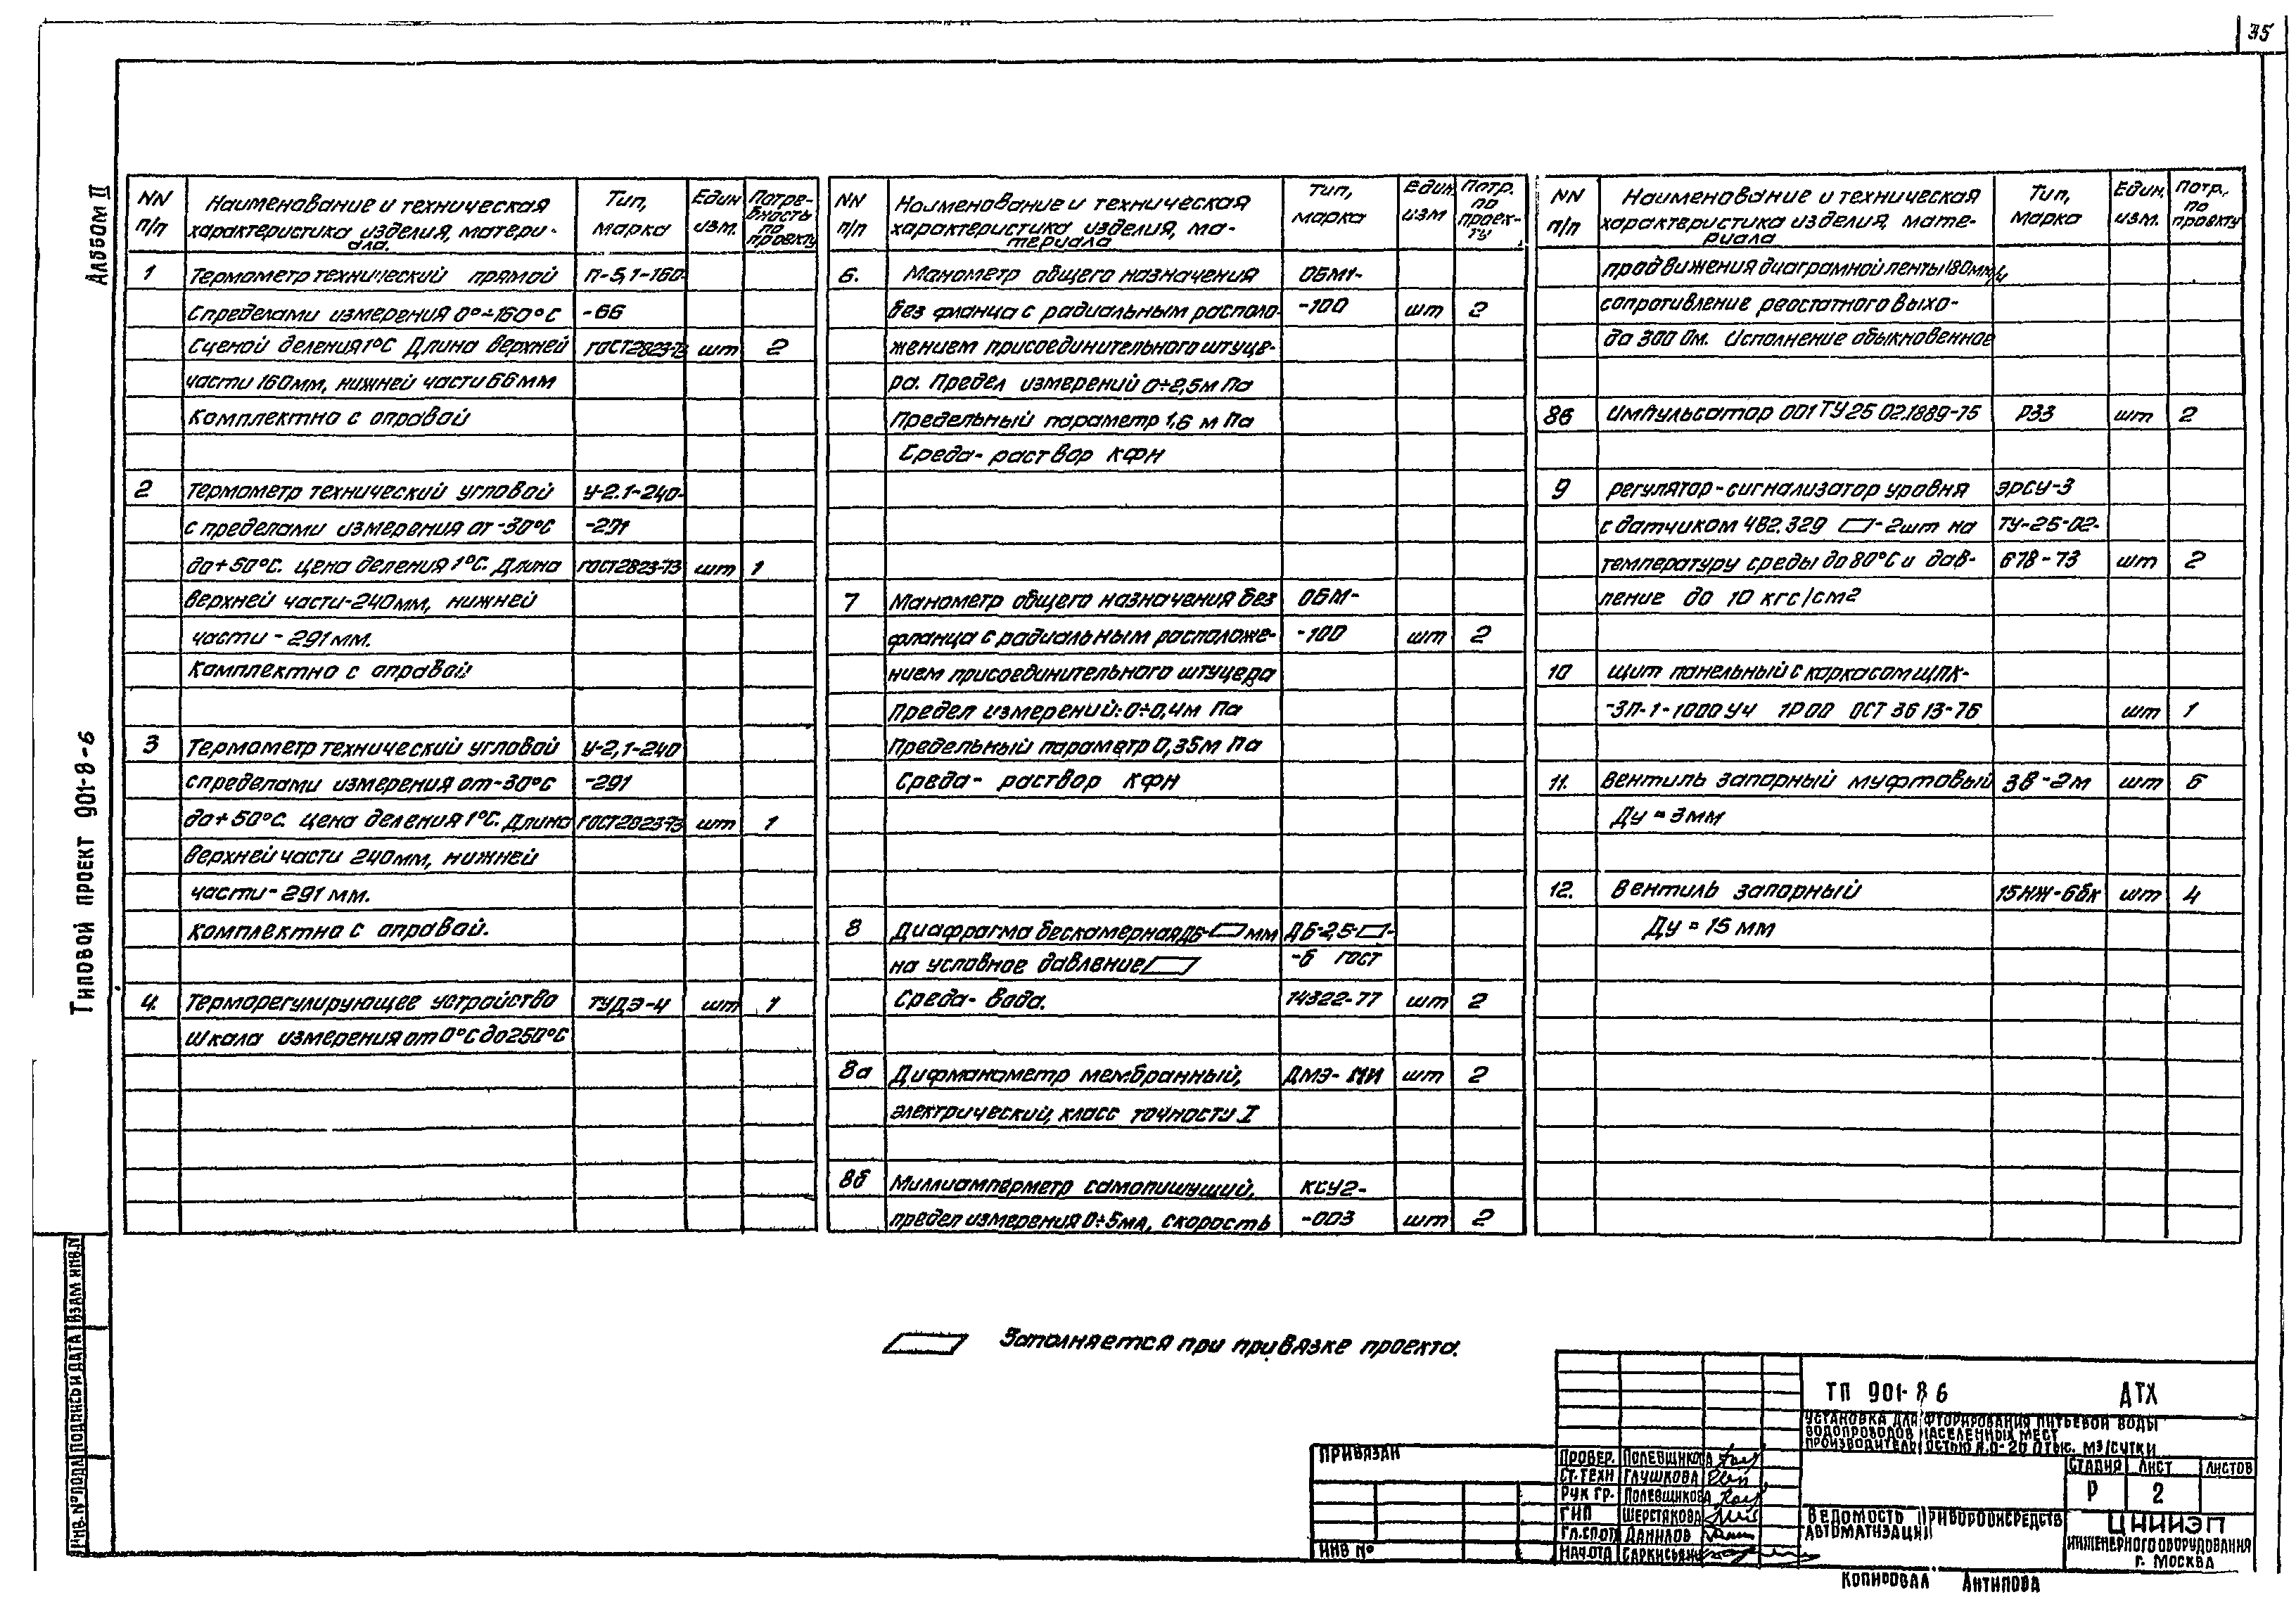 35
Альбом II
Типовой проект 901-8-6
NN п/п
Наименование и техническая характеристика изделия, материала.
Тип, марка
Един. изм.
Потребность по проекту
1 Термометр технический прямой П-5,1-160-
с пределами измерения 0°÷160°С -66
с ценой деления 1°С Длина верхней ГОСТ 2823-73 шт 2
части 160мм, нижней части 66мм
Комплектно с оправой
2 Термометр технический угловой У-2.1-240-
с пределами измерения от -30°С -291
до +50°С. цена деления 1°С. Длина ГОСТ 2823-73 шт 1
верхней части-240мм, нижней
части - 291мм.
Комплектно с оправой
3 Термометр технический угловой У-2,1-240
с пределами измерения от -30°С -291
до +50°С. цена деления 1°С. Длина ГОСТ 2823-73 шт 1
верхней части 240мм, нижней
части - 291мм.
комплектно с оправой.
4. Терморегулирующее устройство ТУДЭ-4 шт 1
Шкала измерения от 0°С до 250°С
NN п/п
Наименование и техническая характеристика изделия, материала
Тип, марка
Един. изм
Потр. по проекту
6. Манометр общего назначения ОБМ1-
без фланца с радиальным располо- -100 шт 2
жением присоединительного штуце-
ра. Предел измерений 0÷2,5м Па
Предельный параметр 1,6 м Па
Среда- раствор КФН
7 Манометр общего назначения без ОБМ-
фланца с радиальным расположе- -100 шт 2
нием присоединительного штуцера
Предел измерений: 0÷0,4м Па
Предельный параметр 0,35м Па
Среда- раствор КФН
8 Диафрагма бескамерная ДБ- мм ДБ-2,5- -
на условное давление -б ГОСТ
Среда- вода. 14322-77 шт 2
8а Дифманометр мембранный, ДМЭ-МИ шт 2
электрический, класс точности I
8б Миллиамперметр самопишущий, КСУ2-
предел измерения 0÷5ма, скорость -003 шт 2
NN п/п
Наименование и техническая характеристика изделия, материала
Тип, марка
Един. изм.
Потр. по проекту
продвижения диаграмной ленты 180мм/ч
сопротивление реостатного выхо-
да 300 Ом. Исполнение обыкновенное
8в Импульсатор 001 ТУ25 02.1889-75 РЗЗ шт 2
9 регулятор-сигнализатор уровня ЭРСУ-3
с датчиком 4В2.329 -2шт на ТУ-25-02-
температуру среды до 80°С и дав- 678-73 шт 2
ление до 10 кгс/см2
10 щит панельный с каркасом ЩПК-
-ЗП-1-1000 У4 1Р00 ОСТ 36 13-76 шт 1
11. Вентиль запорный муфтовый ЗВ-2м шт 6
Ду = 3мм
12. Вентиль запорный 15НЖ-6бк шт 4
Ду = 15 мм
Заполняется при привязке проекта.
ИНВ. № ПОДЛ ПОДПИСЬ И ДАТА ВЗАМ ИНВ. N
ПРИВЯЗАН
ИНВ №
ТП 901-8 6 АТХ
УСТАНОВКА ДЛЯ ФТОРИРОВАНИЯ ПИТЬЕВОЙ ВОДЫ
ВОДОПРОВОДОВ НАСЕЛЕННЫХ МЕСТ
ПРОИЗВОДИТЕЛЬНОСТЬЮ ТЫС. М³/СУТКИ
ПРОВЕР. ПОЛЕВЩИКОВА
СТ. ТЕХН ГЛУШКОВА
РУК ГР. ПОЛЕВЩИКОВА
ГИП ШЕРСТЯКОВА
ГЛ.СП.ОТД ДАНИЛОВ
НАЧ.ОТД САРКИСЬЯНЦ
СТАДИЯ ЛИСТ ЛИСТОВ
Р 2
ВЕДОМОСТЬ ПРИБОРОВ И СРЕДСТВ
АВТОМАТИЗАЦИИ
ЦНИИЭП
ИНЖЕНЕРНОГО ОБОРУДОВАНИЯ
Г. МОСКВА
КОПИРОВАЛ АНТИПОВА